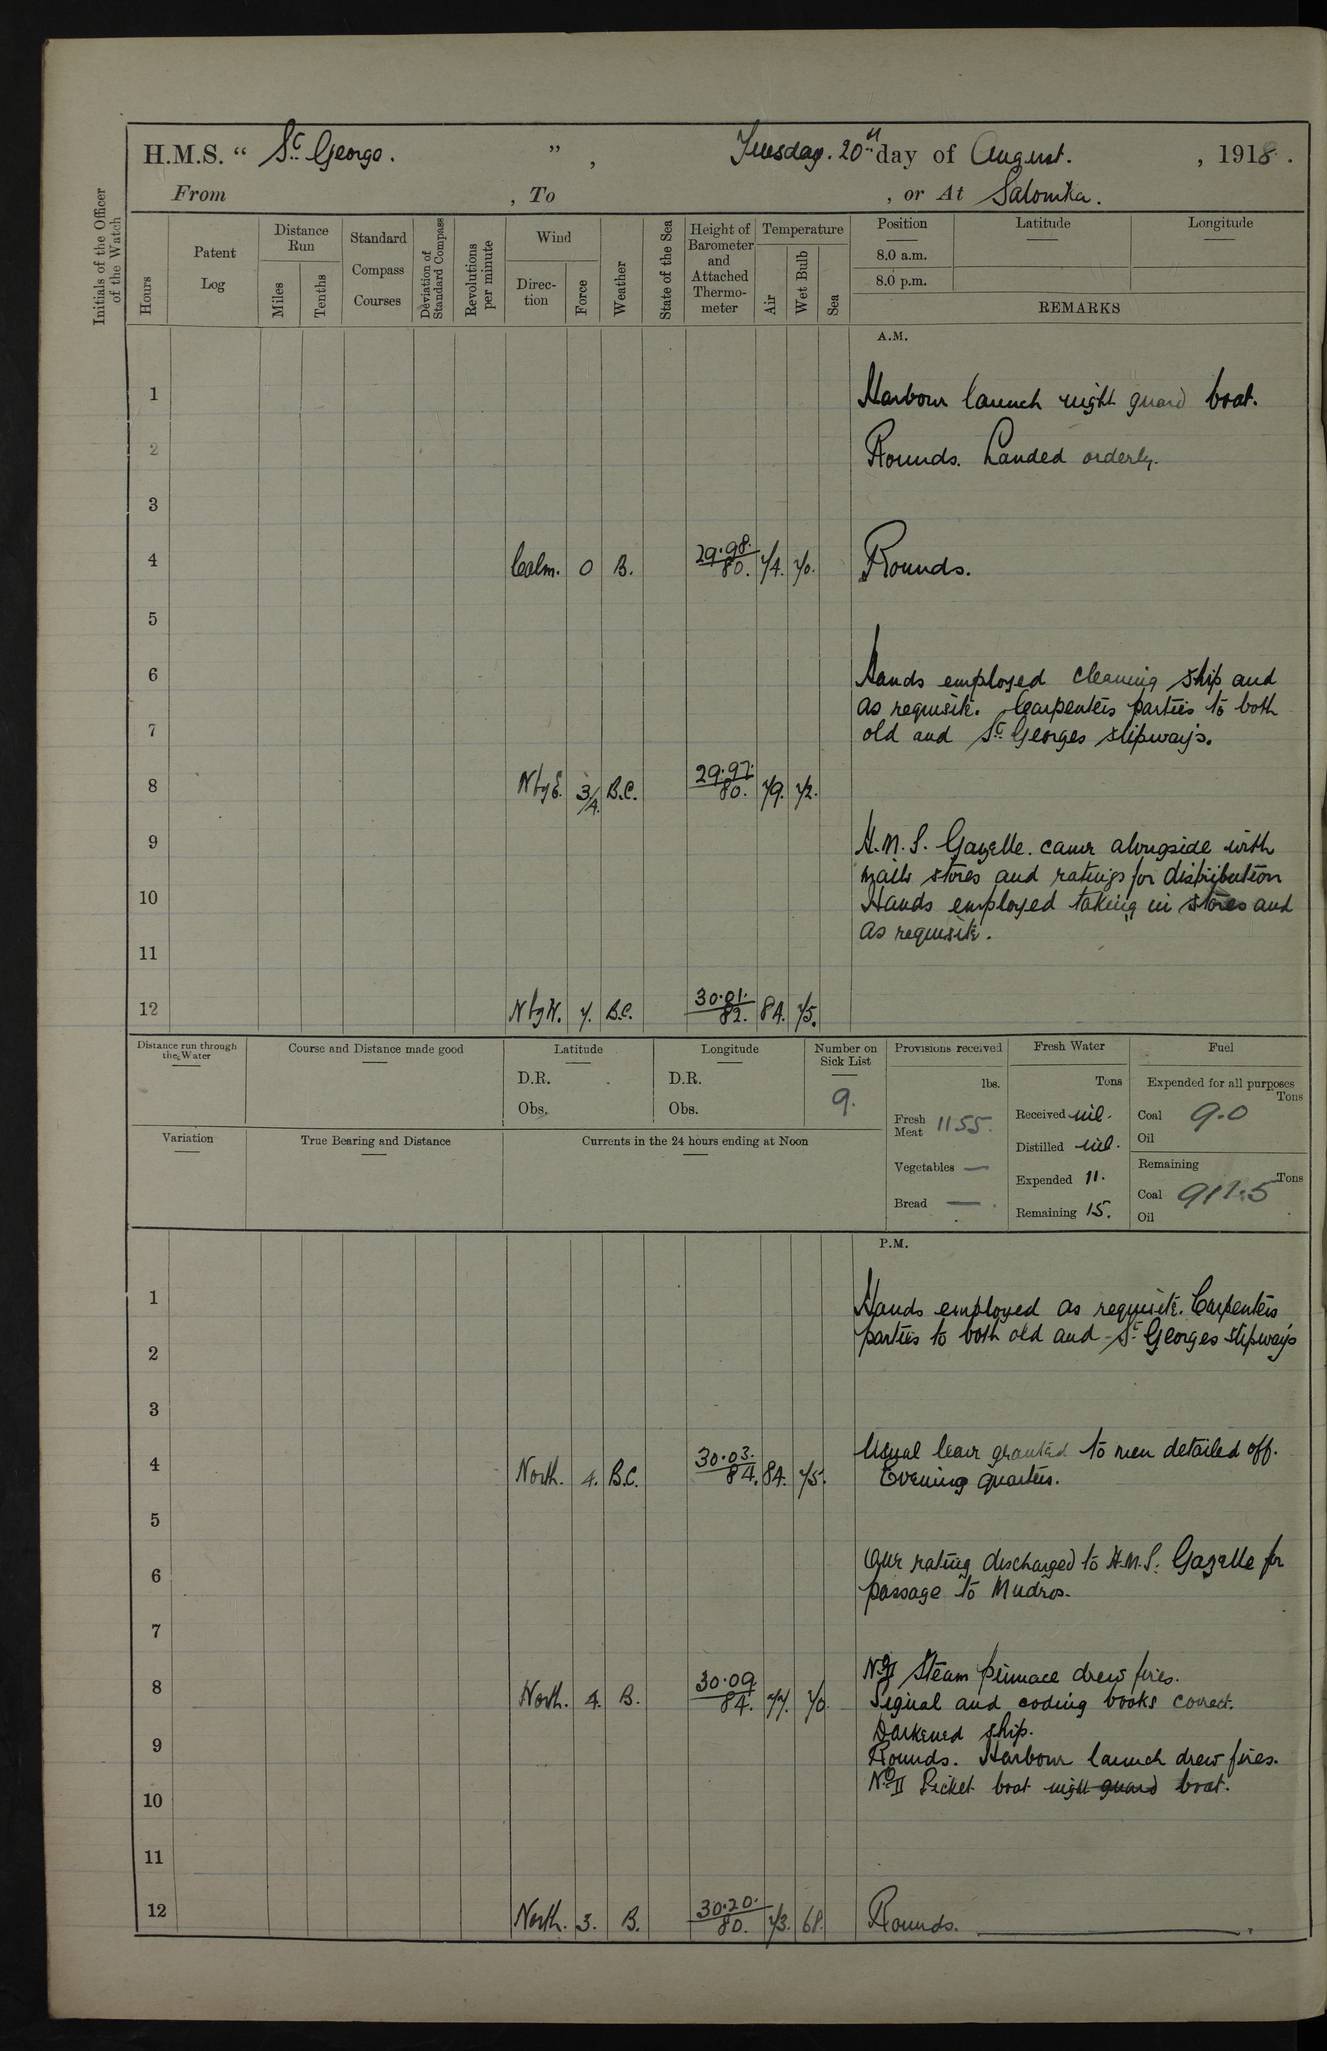 H.M.S. “ St. George. ” , Tuesday. 20th day of August. , 1918 .
From , To , or At Salonika.
Initials of the Officer of the Watch
Hours
Patent Log
Distance Run
Miles
Tenths
Standard Compass Courses
Deviation of Standard Compass
Revolutions per minute
Wind
Direc-tion
Force
Weather
State of the Sea
Height of Barometer and Attached Thermo-meter
Temperature
Air
Wet Bulb
Sea
Position
8.0 a.m.
8.0 p.m.
Latitude
Longitude
REMARKS
A.M.
1 Harbour launch night guard boat.
2 Rounds. Landed orderly.
3
4 Calm. 0 B. 29.98. 80. 74. 70. Rounds.
5
6 Hands employed cleaning ship and
as requisite. Carpenters parties to both
7 old and St. Georges slipways.
8 N by E. 3/4. B.C. 29.97. 80. 79. 72.
9 H.M.S. Gazelle. came alongside with
mails stores and ratings for distribution
10 Hands employed taking in stores and
as requisite.
11
12 N by W. 7. B.C. 30.01. 82. 84. 75.
Distance run through the Water
Course and Distance made good
Latitude
D.R.
Obs.
Longitude
D.R.
Obs.
Number on Sick List
9.
Provisions received
lbs.
Fresh Meat 1155.
Vegetables —
Bread —
Fresh Water
Tons
Received nil.
Distilled nil.
Expended 11.
Remaining 15.
Fuel
Expended for all purposes
Tons
Coal 9.0
Oil
Remaining
Tons
Coal 911.5
Oil
Variation
True Bearing and Distance
Currents in the 24 hours ending at Noon
P.M.
1 Hands employed as requisite. Carpenters
parties to both old and St. Georges slipways
2
3
4 North. 4. B.C. 30.03. 84. 84. 75. Usual leave granted to men detailed off.
Evening quarters.
5
6 One rating discharged to H.M.S. Gazelle for
passage to Mudros.
7
8 North. 4. B. 30.09 84. 77. 70 No II Steam pinnace drew fires.
Signal and coding books correct.
Darkened ship.
9 Rounds. Harbour launch drew fires.
No II Picket boat night guard boat.
10
11
12 North. 3. B. 30.20. 80. 73. 68. Rounds.